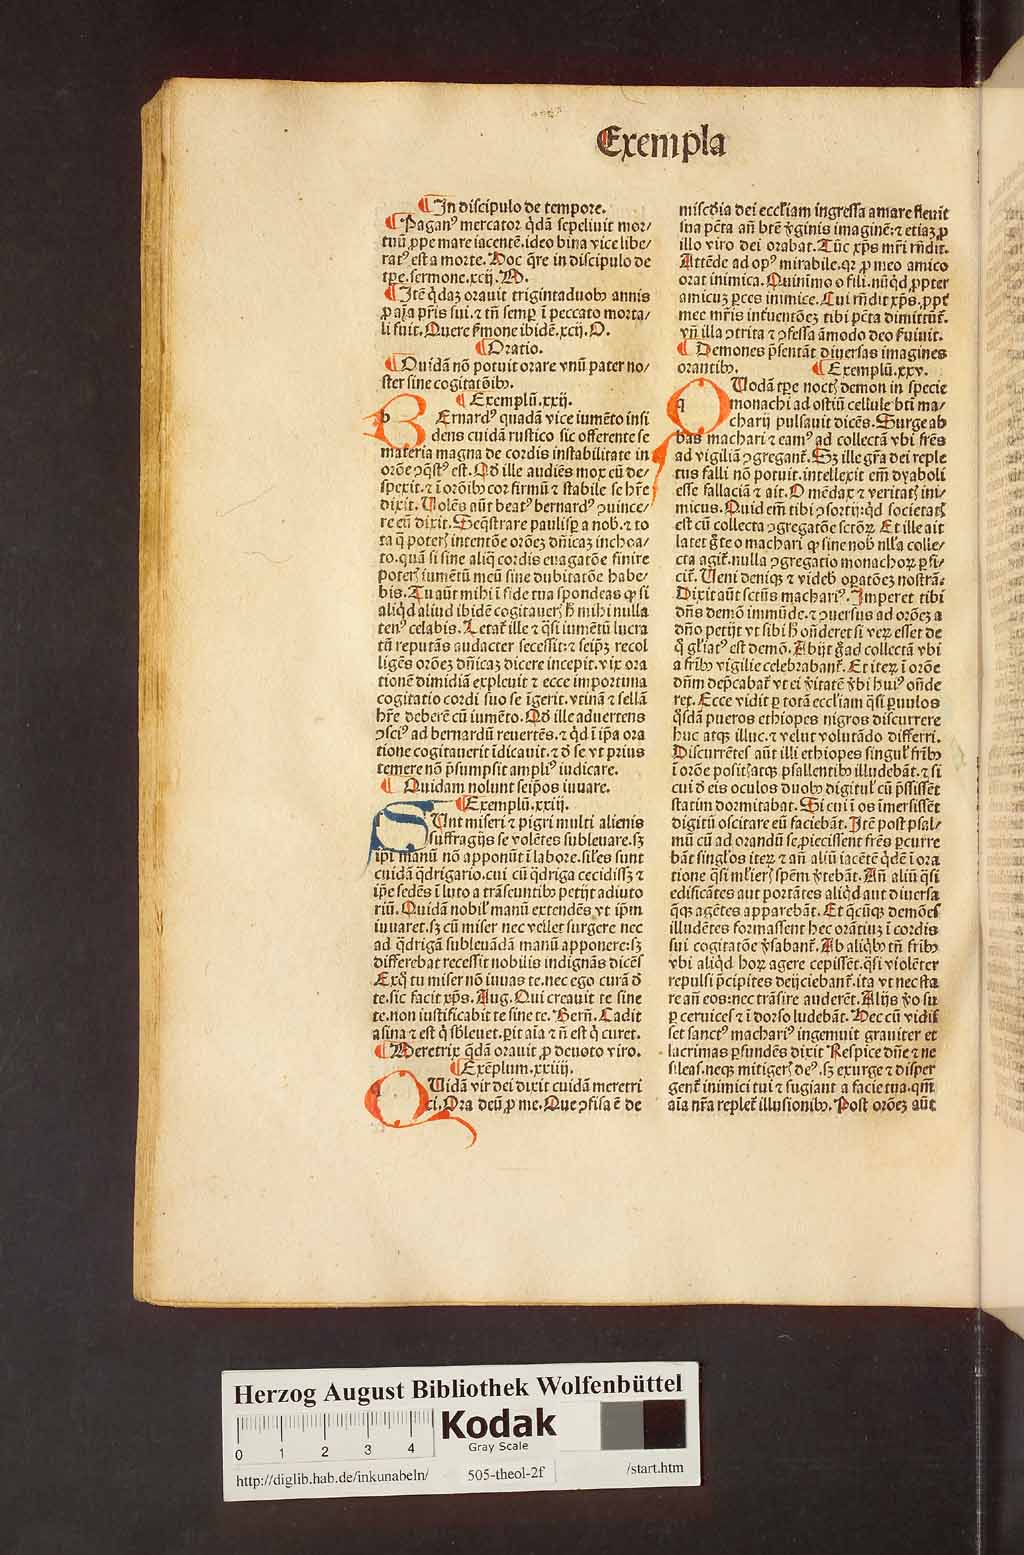 Exempla
¶ In discipulo de tempore.
¶ Paganꝰ mercator q̄dā sepeliuit mor/
tuū ꝓpe mare iacentē. ideo bina vice libe/
ratꝰ est a morte. Hoc q̄re in discipulo de
tp̄e. sermone. xcij. M.
¶ Itē q̄daꝫ orauit trigintaduobꝰ annis
ꝓ aīa pr̄is sui. ⁊ tn̄ semꝑ ī peccato morta/
li fuit. Quere ẜmone ibidē. xcij. O.
¶ Oratio.
¶ Quidā nō potuit orare vnū pater no/
ster sine cogitatōibꝰ.
¶ Exemplū. xxij.
BErnardꝰ quadā vice iumēto insi
dens cuidā rustico sic offerente se
materia magna de cordis instabilitate in
orōe ꝯq̄stꝰ est. Qd̄ ille audiēs mox cū de/
spexit. ⁊ ī orōibꝰ cor firmū ⁊ stabile se hr̄e
dixit. Volēs aūt beatꝰ bernardꝰ ꝯuince/
re eū dixit. Seq̄strare paulisꝑ a nob̄. ⁊ to
ta q̄ poterꝭ intentōe orōeꝫ dn̄icaꝫ inchoa/
to. quā si sine aliq̄ cordis euagatōe finire
poterꝭ iumētū meū sine dubitatōe habe/
bis. Tu aūt mihi ī fide tua spondeas ꝙ si
aliq̄d aliud ibidē cogitauerꝭ h̄ mihi nulla
tenꝰ celabis. Letat᷑ ille ⁊ q̄si iumētū lucra
tū reputās audacter secessit: ⁊ seip̄ꝫ recol
ligēs orōeꝫ dn̄icaꝫ dicere incepit. vix ora
tionē dimidiā expleuit ⁊ ecce importuna
cogitatio cordi suo se īgerit. vtrū ⁊ sellā
hr̄e deberet cū iumēto. Qd̄ ille aduertens
ꝯsciꝰ ad bernardū reuertēs. ⁊ q̄d ī ip̄a ora
tione cogitauerit īdicauit. ⁊ d̄ se vt prius
temere nō p̄sumpsit ampliꝰ iudicare.
¶ Quidam nolunt seip̄os iuuare.
¶ Exemplū. xxiij.
SUnt miseri ⁊ pigri multi alienis
suffragijs se volētes subleuare. sꝫ
ip̄i manū nō apponūt ī labore. sil̄es sunt
cuidā q̄drigario. cui cū q̄driga cecidissꝫ ⁊
ip̄e sedēs ī luto a trāseuntibꝰ petijt adiuto
riū. Quidā nobil᷑ manū extendēs vt ip̄m
iuuaret. sꝫ cū miser nec vellet surgere nec
ad q̄drigā subleuādā manū apponere: sꝫ
differebat recessit nobilis indignās dicēs
Exq̄ tu miser nō iuuas te. nec ego curā d̄
te. sic facit xp̄s. Aug. Qui creauit te sine
te. non iustificabit te sine te. Bern̄. Cadit
asina ⁊ est q̄ sb̄leuet. ꝑit aīa ⁊ n̄ est q̄ curet.
¶ Meretrix q̄dā orauit ꝓ deuoto viro.
¶ Exēplum. xxiiij.
QUidā vir dei dixit cuidā meretri
ci. Ora deū ꝓ me. Que ꝯfisa ē de
misc̄dia dei eccl̄iam ingressa amare fleuit
sua pc̄ta an̄ btē v̄ginis imaginē: ⁊ etiaꝫ ꝓ
illo viro dei orabat. Tūc xp̄s mr̄i rn̄dit.
Attēde ad opꝰ mirabile. qꝛ ꝓ meo amico
orat inimica. Quinīmo o fili. nūq̄d ꝓpter
amicuꝫ ꝑces inimice. Cui rn̄dit xp̄s. ꝓpt᷑
mee mr̄is intuentōeꝫ tibi pc̄ta dimittūt᷑.
vn̄ illa ꝯtrita ⁊ ꝯfessa āmodo deo ẜuiuit.
¶ Demones p̄sentāt diuersas imagines
orantibꝰ. ¶ Exemplū. xxv.
QUodā tp̄e noctꝭ demon in specie
monachi ad ostiū cellule bti ma/
charij pulsauit dicēs. Surge ab
bas machari ⁊ eamꝰ ad collectā vbi fr̄es
ad vigiliā ꝯgregant᷑. Sꝫ ille gr̄a dei reple
tus falli nō potuit. intellexit em̄ dyaboli
esse fallaciā ⁊ ait. O mēdax ⁊ veritatꝭ ini/
micus. Quid em̄ tibi ꝯsortij: q̄d societatꝭ
est cū collecta ꝯgregatōe sctōꝝ. Et ille ait
latet g̊ te o machari ꝙ sine nob̄ nll̄a colle/
cta agit᷑. nulla ꝯgregatio monachoꝝ ꝑfi/
cit᷑. Veni deniqꝫ ⁊ videb̄ oꝑatōeꝫ nostrā:
Dixit aūt sctūs machariꝰ. Imperet tibi
dn̄s demō immūde. ⁊ ꝯuersus ad orōeꝫ a
dn̄o petijt vt sibi h̄ oñderet si veꝝ esset de
q̄ gl̄iatꝰ est demō. Abijt g̊ ad collectā vbi
a fribꝰ vigilie celebrabant᷑. Et iteꝝ ī orōe
dn̄m dep̄cabat᷑ vt ei v̄itatē v̄bi huiꝰ oñde
ret. Ecce vidit ꝑ totā eccl̄iam q̄si ꝑuulos
q̄sdā pueros ethiopes nigros discurrere
huc atqꝫ illuc. ⁊ velut volutādo differri.
Discurrētes aūt illi ethiopes singul᷑ fr̄ibꝰ
ī orōe positꝭ atqꝫ psallentibꝰ illudebāt. ⁊ si
cui d̄ eis oculos duobꝰ digitul᷑ cū p̄ssissēt
statim dormitabat. Si cui ī os īmersissēt
digitū oscitare eū faciebāt. Itē post psal/
mū cū ad orandū se ꝓiecissent fr̄es ꝑcurre
bāt singl̄os iteꝝ ⁊ an̄ aliū iacētē q̄dē ī ora
tione q̄si ml̄ierꝭ spēm v̄tebāt. An̄ aliū q̄si
edificātes aut portātes aliq̄d aut diuersa
q̄qꝫ agētes apparebāt. Et q̄cūqꝫ demōes
illudētes formassent hec orātiuꝫ ī cordis
sui cogitatōe v̄sabant᷑. Ab aliq̄bꝰ tn̄ fribꝰ
vbi aliq̄d hoꝝ agere cepissēt. q̄si violēter
repulsi p̄cipites deijciebant᷑. ita vt nec sta
re an̄ eos: nec trāsire auderēt. Alijs v̄o su
ꝑ ceruices ⁊ ī dorso ludebāt. Hec cū vidis
set sanctꝰ machariꝰ ingemuit grauiter et
lacrimas ꝑfundēs dixit Respice dn̄e ⁊ ne
sileas. neqꝫ mitigerꝭ deꝰ. sꝫ exurge ⁊ disper
gent᷑ inimici tui ⁊ fugiant a facie tua. qm̄
aīa nr̄a replet᷑ illusionibꝰ. Post orōeꝫ aūt
Herzog August Bibliothek Wolfenbüttel
0 1 2 3 4
Kodak
Gray Scale
http://diglib.hab.de/inkunabeln/ 505-theol-2f /start.htm